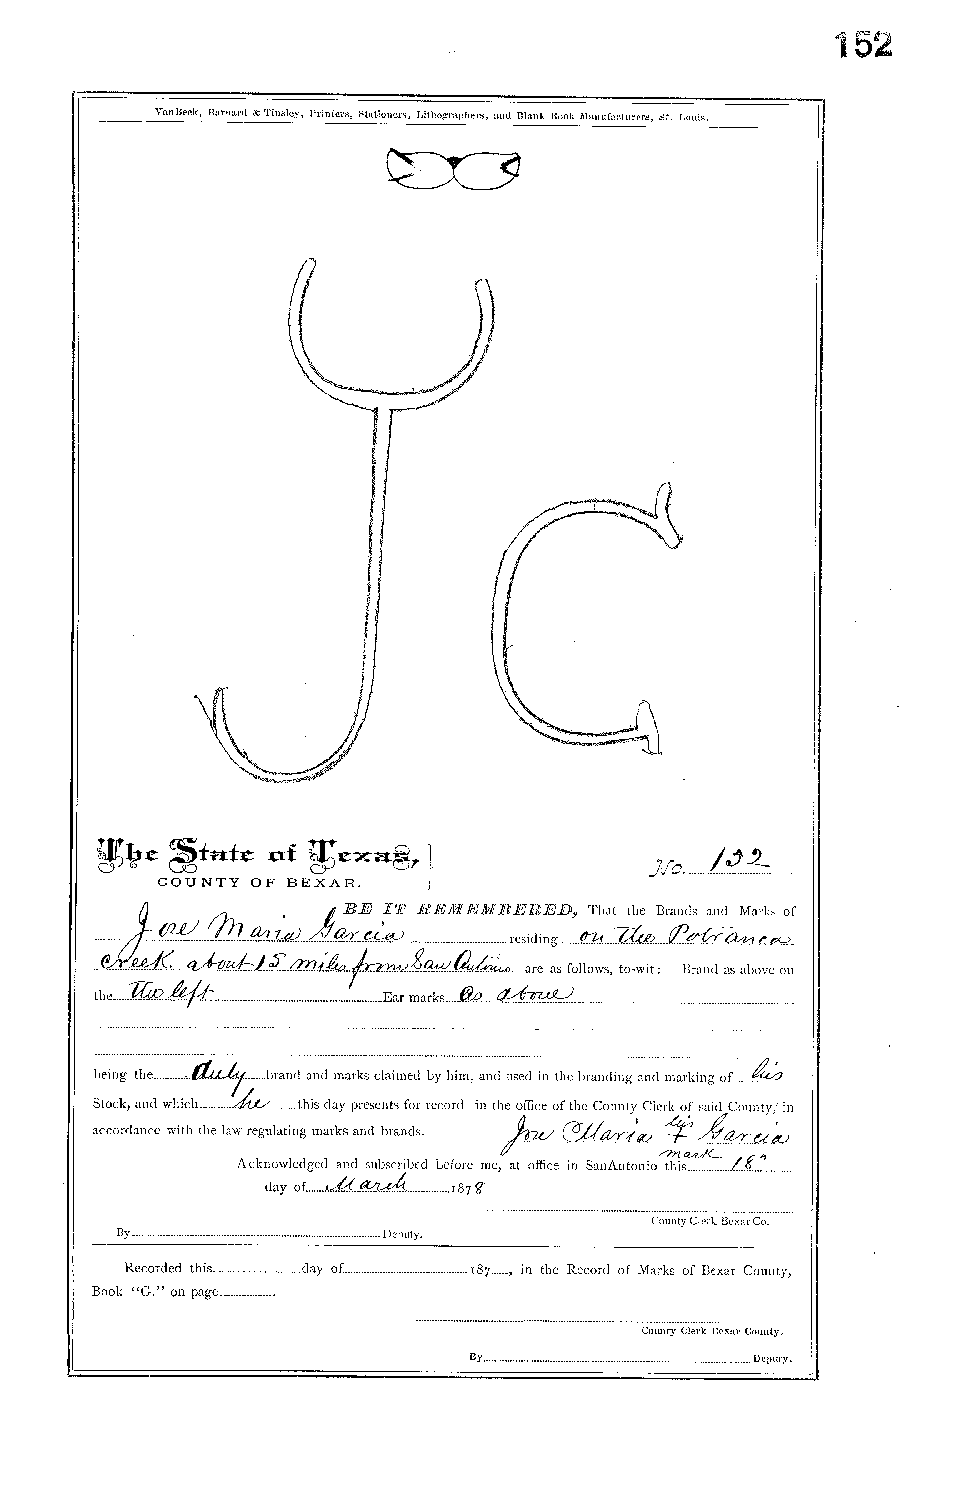 152
VanBeek, Barnard & Tinsley, Printers, Stationers, Lithographers, and Blank Book Manufacturers, St. Louis.
The State of Texas,
COUNTY OF BEXAR.
No. 122
BE IT REMEMBERED, That the Brands and Marks of
Jose Maria Garcia residing on the Potranca
Creek about 15 miles from San Antonio are as follows, to-wit: Brand as above on
the the left Ear marks as above
being the duly brand and marks claimed by him, and used in the branding and marking of his
Stock, and which he this day presents for record in the office of the County Clerk of said County, in
accordance with the law regulating marks and brands.
his
Jose Maria X Garcia
mark
Acknowledged and subscribed before me, at office in SanAntonio this 18"
day of March 1878
County Clerk Bexar Co.
By Deputy.
Recorded this day of 187 , in the Record of Marks of Bexar County,
Book "G." on page
County Clerk Bexar County.
By Deputy.